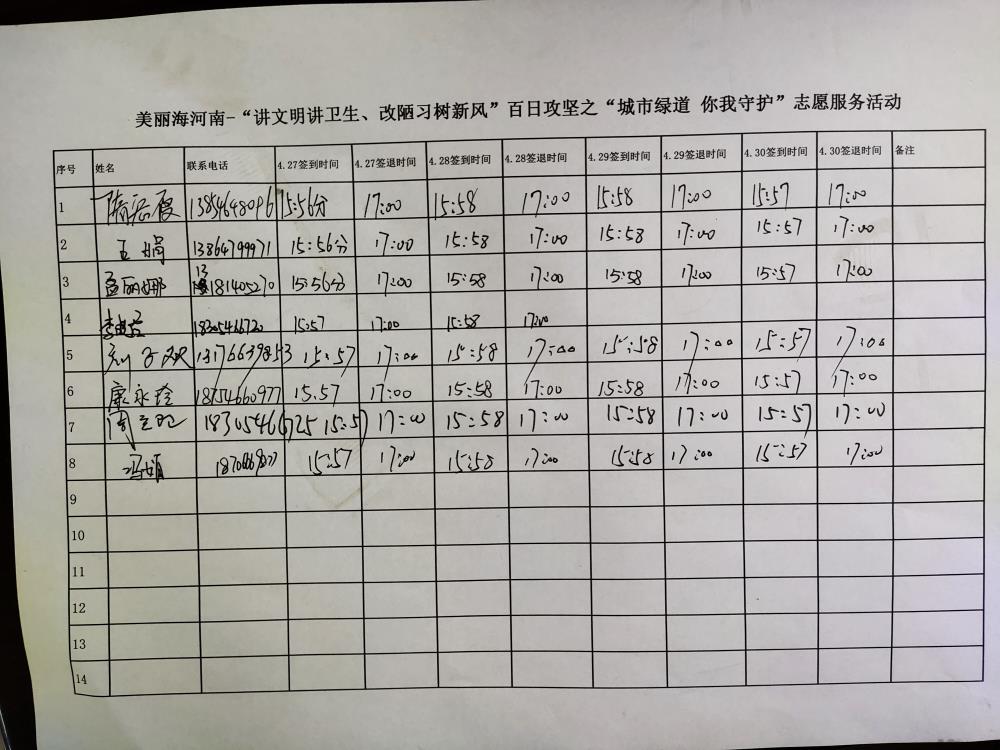 美丽海河南-“讲文明讲卫生、改陋习树新风”百日攻坚之“城市绿道 你我守护”志愿服务活动
序号 姓名 联系电话 4.27签到时间 4.27签退时间 4.28签到时间 4.28签退时间 4.29签到时间 4.29签退时间 4.30签到时间 4.30签退时间 备注
1 13854648096 15:56分 17:00 15:58 17:00 15:58 17:00 15:57 17:00
2 王娟 13864799971 15:56分 17:00 15:58 17:00 15:58 17:00 15:57 17:00
3 孟丽娜 15:56分 17:00 15:58 17:00 15:58 17:00 15:57 17:00
4 18305466720 15:57 17:00 15:58 17:00
5 15:57 17:00 15:58 17:00 15:58 17:00 15:57 17:00
6 康永玲 18754660977 15.57 17:00 15:58 17:00 15:58 17:00 15:57 17:00
7 15:57 17:00 15:58 17:00 15:58 17:00 15:57 17:00
8 冯娟 15:57 17:00 15:58 17:00 15:58 17:00 15:57 17:00
9
10
11
12
13
14